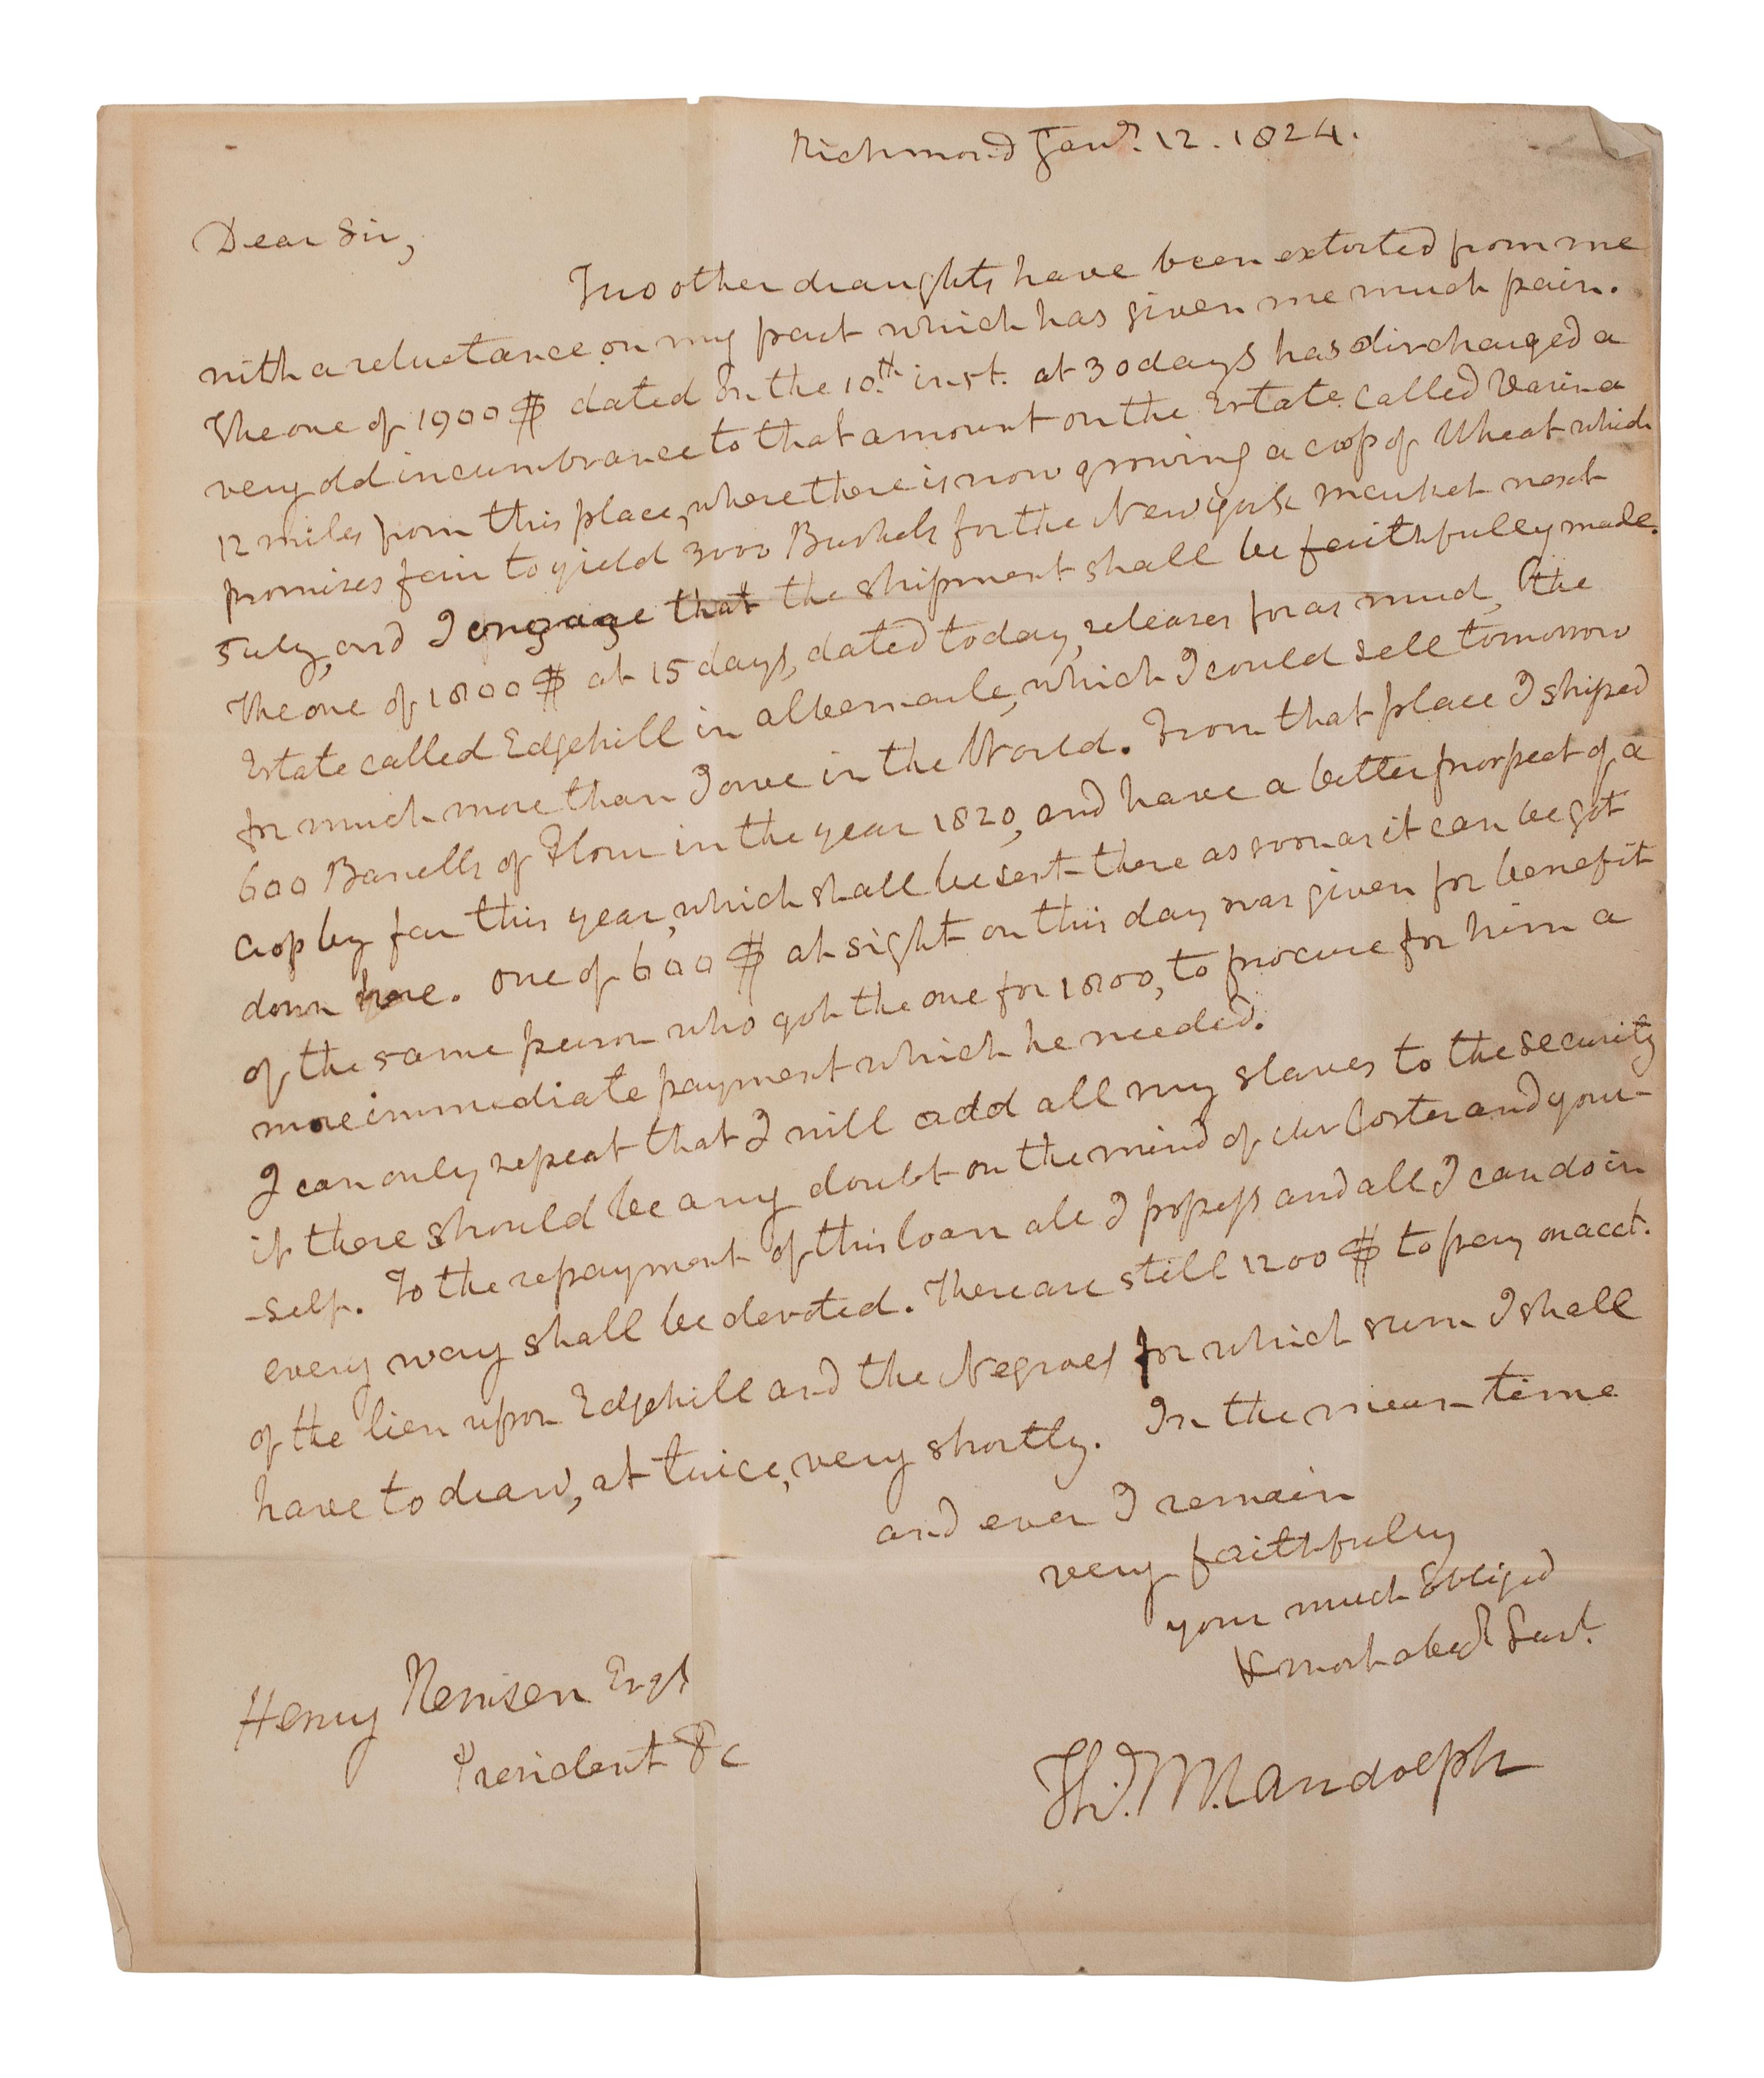 Richmond Jany. 12. 1824.
Dear Sir,
Two other draughts have been extorted from me
with a reluctance on my part which has given me much pain.
The one of 1900$ dated on the 10th. inst. at 30 days has discharged a
very old incumbrance to that amount on the Estate called Varina
12 miles from this place, where there is now growing a crop of Wheat which
promises fair to yield 3000 Bushels for the New york market next
July, and I engage that the shipment shall be faithfully made.
The one of 1800$ at 15 days, dated today, releases for as much, the
Estate called Edgehill in albemarle, which I could sell tomorrow
for much more than I owe in the World. From that place I shiped
600 Barrells of Flour in the year 1820, and have a better prospect of a
crop by far this year, which shall be sent there as soon as it can be got
down here. One of 600$ at sight on this day was given for benefit
of the same person who got the one for 1800, to procure for him a
more immediate payment which he needed.
I can only repeat that I will add all my slaves to the security
if there should be any doubt on the mind of Mr Coster and your-
-self. To the repayment of this loan all I possess and all I can do in
every way shall be devoted. There are still 1200$ to pay on acct.
of the lien upon Edgehill and the Negroes for which sum I shall
have to draw, at twice, very shortly. In the mean time
and ever I remain
very faithfully
your much Obliged
& most obedt Servt.
Henry Remsen Esqr
President &c
Th: M. Randolph